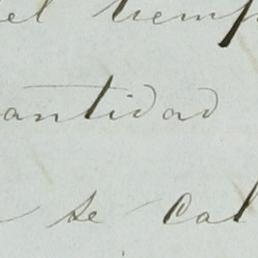 el tiemp
antidad
se Cal